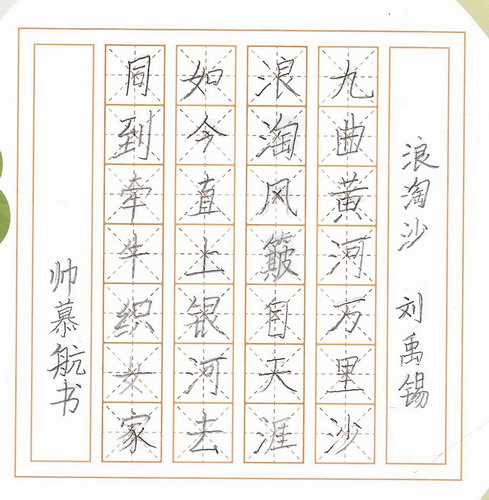 浪淘沙 刘禹锡
九曲黄河万里沙
浪淘风簸自天涯
如今直上银河去
同到牵牛织女家
帅慕航书